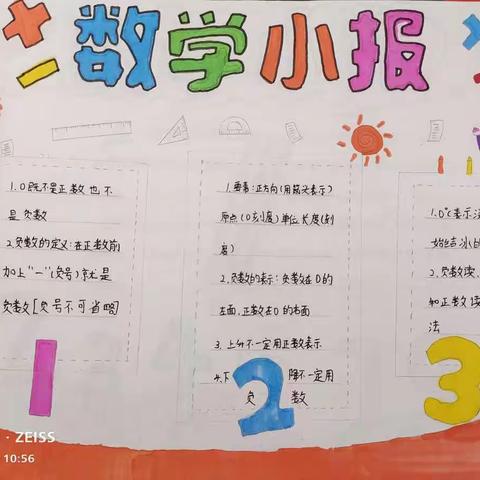 数学小报
1.0既不是正数也不
是负数
2.负数的定义:在正数前
加上"-"(负号)就是
负数[负号不可省略]
1
1.要素:正方向(用箭头表示)
原点(0刻度)单位长度(刻
度)
2.负数的表示:负数在0的
左面,正数在0的右面
3.上升不一定用正数表示
4.下降不一定用
负数
2
1.0℃表示
始结冰的
2.负数读
和正数读
法
3
· ZEISS
10:56